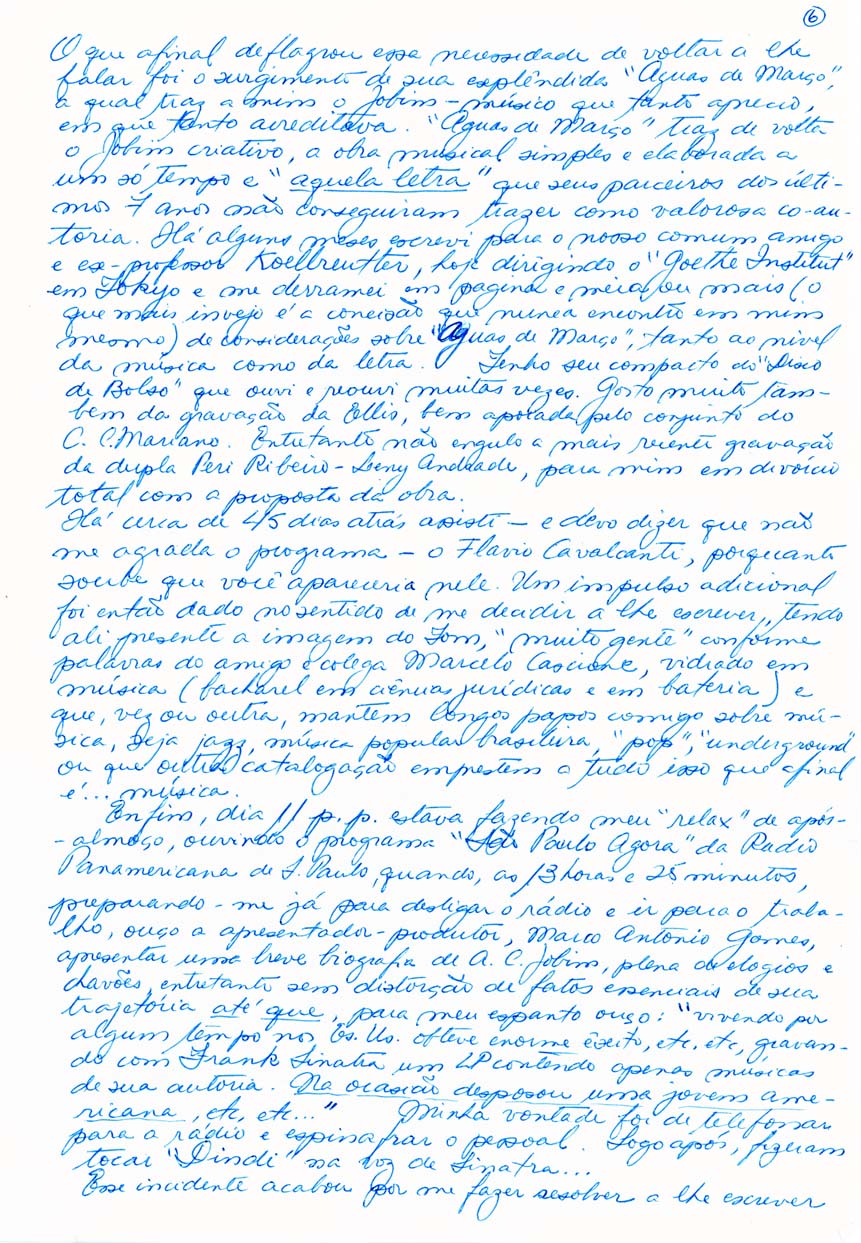 6
O que afinal deflagrou essa necessidade de voltar a lhe
falar foi o surgimento de sua esplêndida "Águas de Março",
a qual traz a mim o Jobim-músico que tanto aprecio,
em que tanto acreditava. "Águas de Março" traz de volta
o Jobim criativo, a obra musical simples e elaborada a
um só tempo e "aquela letra" que seus parceiros dos últi-
mos 7 anos não conseguiram trazer como valorosa co-au-
toria. Há alguns meses escrevi para o nosso comum amigo
e ex-professor Koellreutter, hoje dirigindo o "Goethe Institut"
em Tokyo e me derramei em pagina e meia ou mais (o
que mais invejo é a concisão que nunca encontro em mim
mesmo) de considerações sobre "Águas de Março", tanto ao nível
da música como da letra. Tenho seu compacto do "Disco
de Bolso" que ouvi e reouvi muitas vezes. Gosto muito tam-
bém da gravação da Ellis, bem apoiada pelo conjunto do
C. C. Mariano. Entretanto não engulo a mais recente gravação
da dupla Peri Ribeiro - Leny Andrade, para mim em divórcio
total com a proposta da obra.
Há cerca de 4/5 dias atrás assisti - e devo dizer que não
me agrada o programa - o Flavio Cavalcanti, porquanto
soube que você apareceria nele. Um impulso adicional
foi então dado no sentido de me decidir a lhe escrever, tendo
ali presente a imagem do Tom, "muito gente" conforme
palavras do amigo e colega Marcelo Cascione, vidrado em
música (bacharel em ciências jurídicas e em bateria) e
que, vez ou outra, mantem longos papos comigo sobre mú-
sica, seja jazz, música popular brasileira, "pop", "underground"
ou que outra catalogação emprestem a tudo isso que afinal
é... música.
Enfim, dia 11 p.p. estava fazendo meu "relax" de após-
-almoço, ouvindo o programa "São Paulo Agora" da Radio
Panamericana de S. Paulo, quando, as 13 horas e 25 minutos,
preparando-me já para desligar o rádio e ir para o traba-
lho, ouço a apresentador-produtor, Marco Antonio Gomes,
apresentar uma breve biografia de A. C. Jobim, plena de elogios e
chavões, entretanto sem distorção de fatos essenciais de sua
trajetória até que, para meu espanto ouço: "vivendo por
algum tempo nos Es. Us. obteve enorme êxito, etc. etc, gravan-
do com Frank Sinatra um LP contendo apenas músicas
de sua autoria. Na ocasião desposou uma jovem ame-
ricana, etc, etc..." Minha vontade foi de telefonar
para a rádio e espinafrar o pessoal. Logo após, fizeram
tocar "Dindi" na voz de Sinatra...
Esse incidente acabou por me fazer resolver a lhe escrever